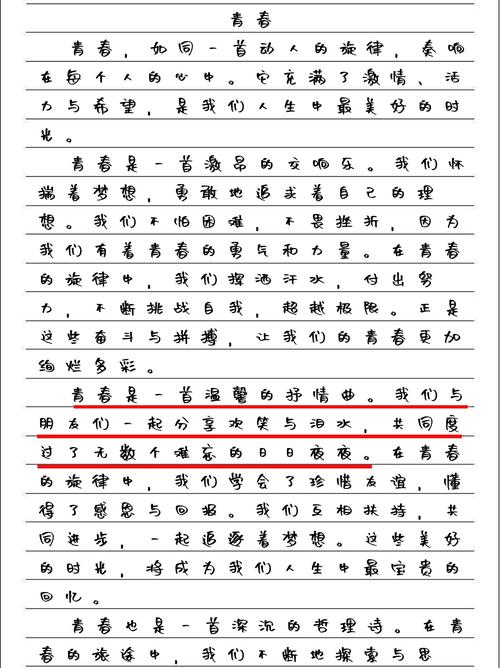 青春
青春，如同一首动人的旋律，奏响
在每个人的心中。它充满了激情、活
力与希望，是我们人生中最美好的时
光。
青春是一首激昂的交响乐。我们怀
揣着梦想，勇敢地追求着自己的理
想。我们不怕困难，不畏挫折，因为
我们有着青春的勇气和力量。在青春
的旋律中，我们挥洒汗水，付出努
力，不断挑战自我，超越极限。正是
这些奋斗与拼搏，让我们的青春更加
绚烂多彩。
青春是一首温馨的抒情曲。我们与
朋友们一起分享欢笑与泪水，共同度
过了无数个难忘的日日夜夜。在青春
的旋律中，我们学会了珍惜友谊，懂
得了感恩与回报。我们互相扶持，共
同进步，一起追逐着梦想。这些美好
的时光，将成为我们人生中最宝贵的
回忆。
青春也是一首深沉的哲理诗。在青
春的旅途中，我们不断地探索与思